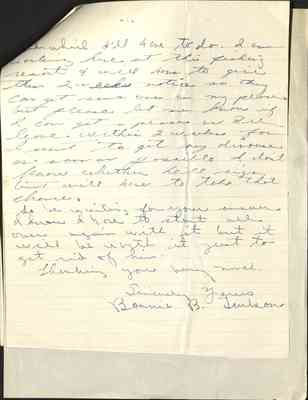 I will have to do. I am
working here at this fishing
resort & will have to give
them 2 weeks notice so they
can get some one in my place
but please let me know if
I can get a
within 2 weeks for
I want to get my divorce
as soon as possible I don't
know whether he'll sign
but will have to take that
chance.
So be waiting for your answer
I know I have to start all
over again with it but it
will be worth it just to
get rid of him.
Thanking you very much.
Sincerely Yours
Bonnie B.